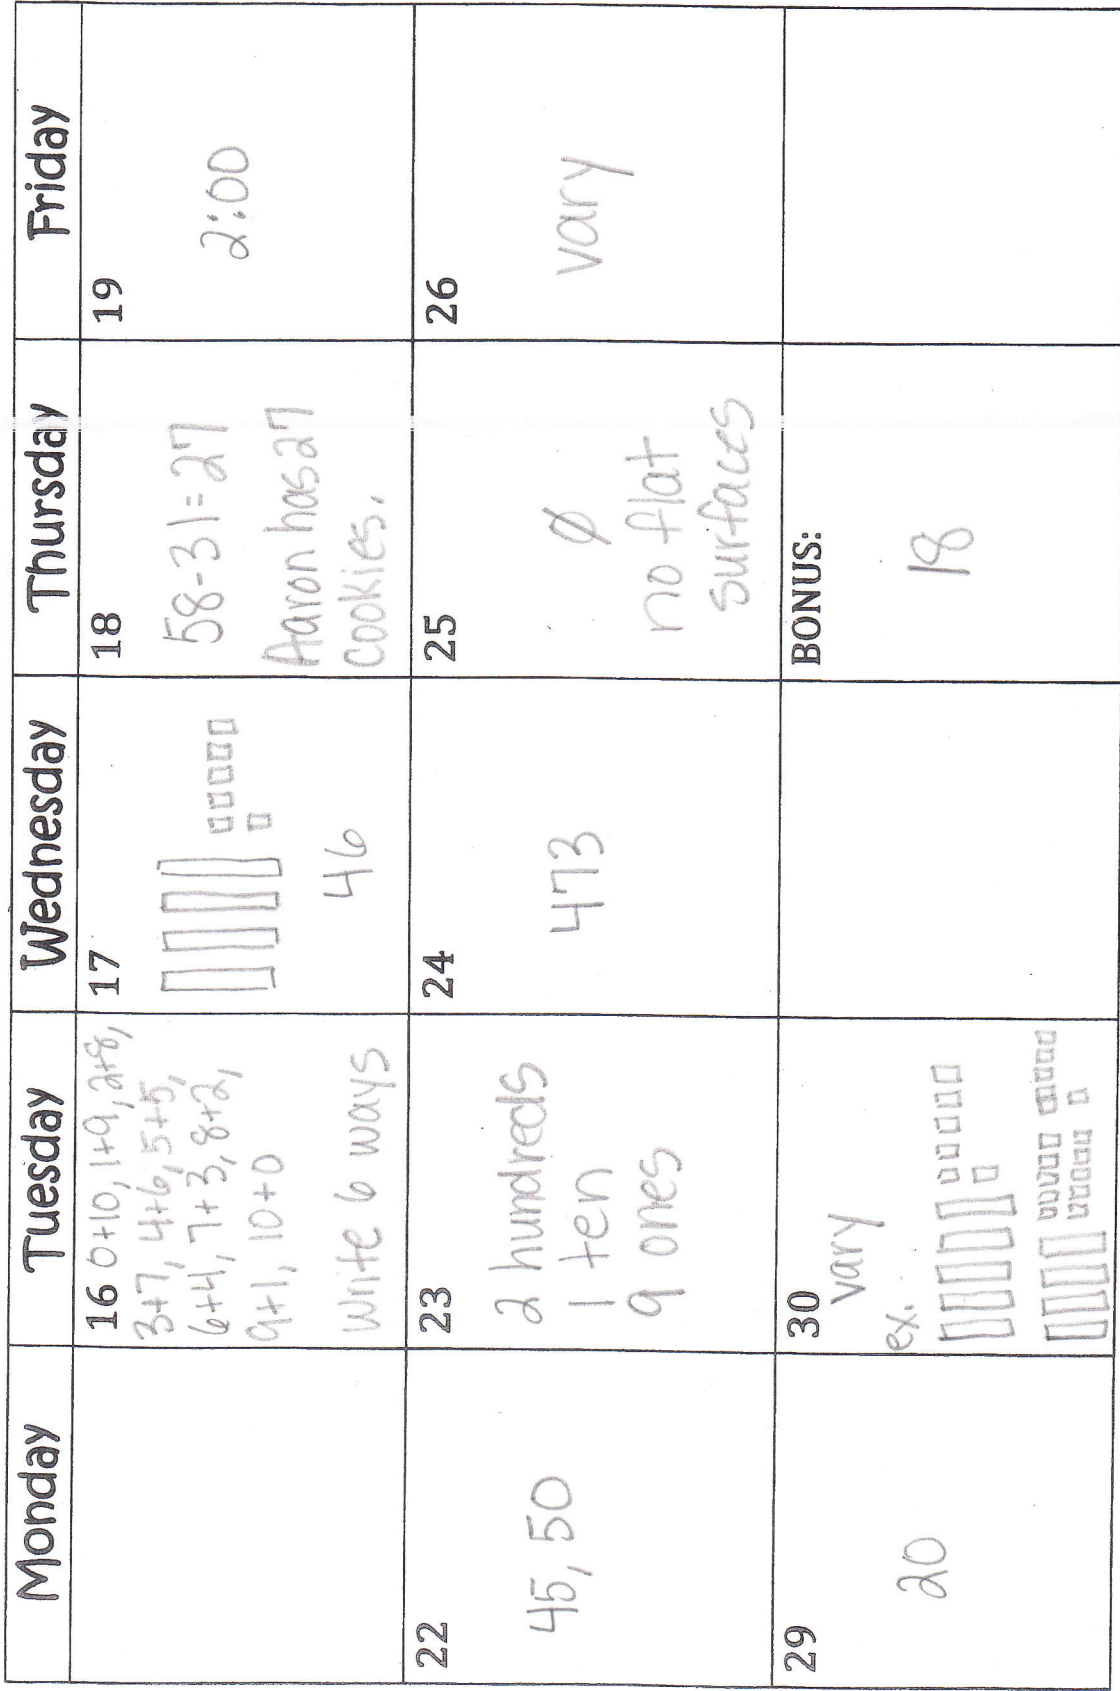 Monday
Tuesday
Wednesday
Thursday
Friday
16 0+10, 1+9, 2+8,
3+7, 4+6, 5+5,
6+4, 7+3, 8+2,
9+1, 10+0
Write 6 ways
17
46
18
58-31=27
Aaron has 27
cookies.
19
2:00
22
45, 50
23
2 hundreds
1 ten
9 ones
24
473
25
Ø
no flat
surfaces
26
vary
29
20
30
vary
ex.
BONUS:
18